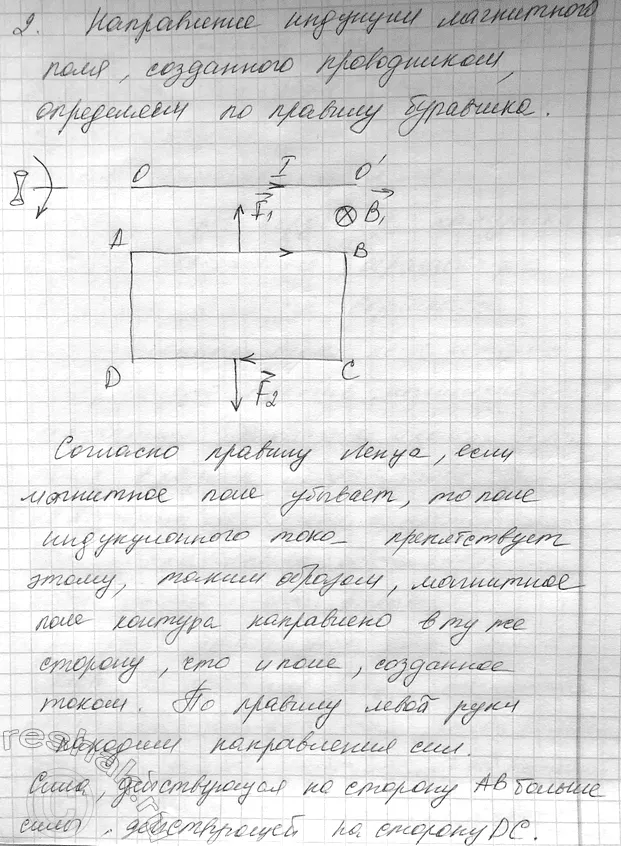 2. Направление индукции магнитного
поля, созданного проводником,
определяем по правилу буравчика.
O I O'
F₁ B₁
A B
D C
F₂
Согласно правилу Ленца, если
магнитное поле убывает, то поле
индукционного тока препятствует
этому, таким образом, магнитное
поле контура направлено в ту же
сторону, что и поле, созданное
током. По правилу левой руки
находим направления сил.
Сила, действующая на сторону AB больше
силы, действующей на сторону DC.
reshak.ru